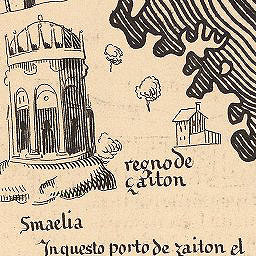 regno de
çaiton
Smaelia
In questo porto de zaiton el